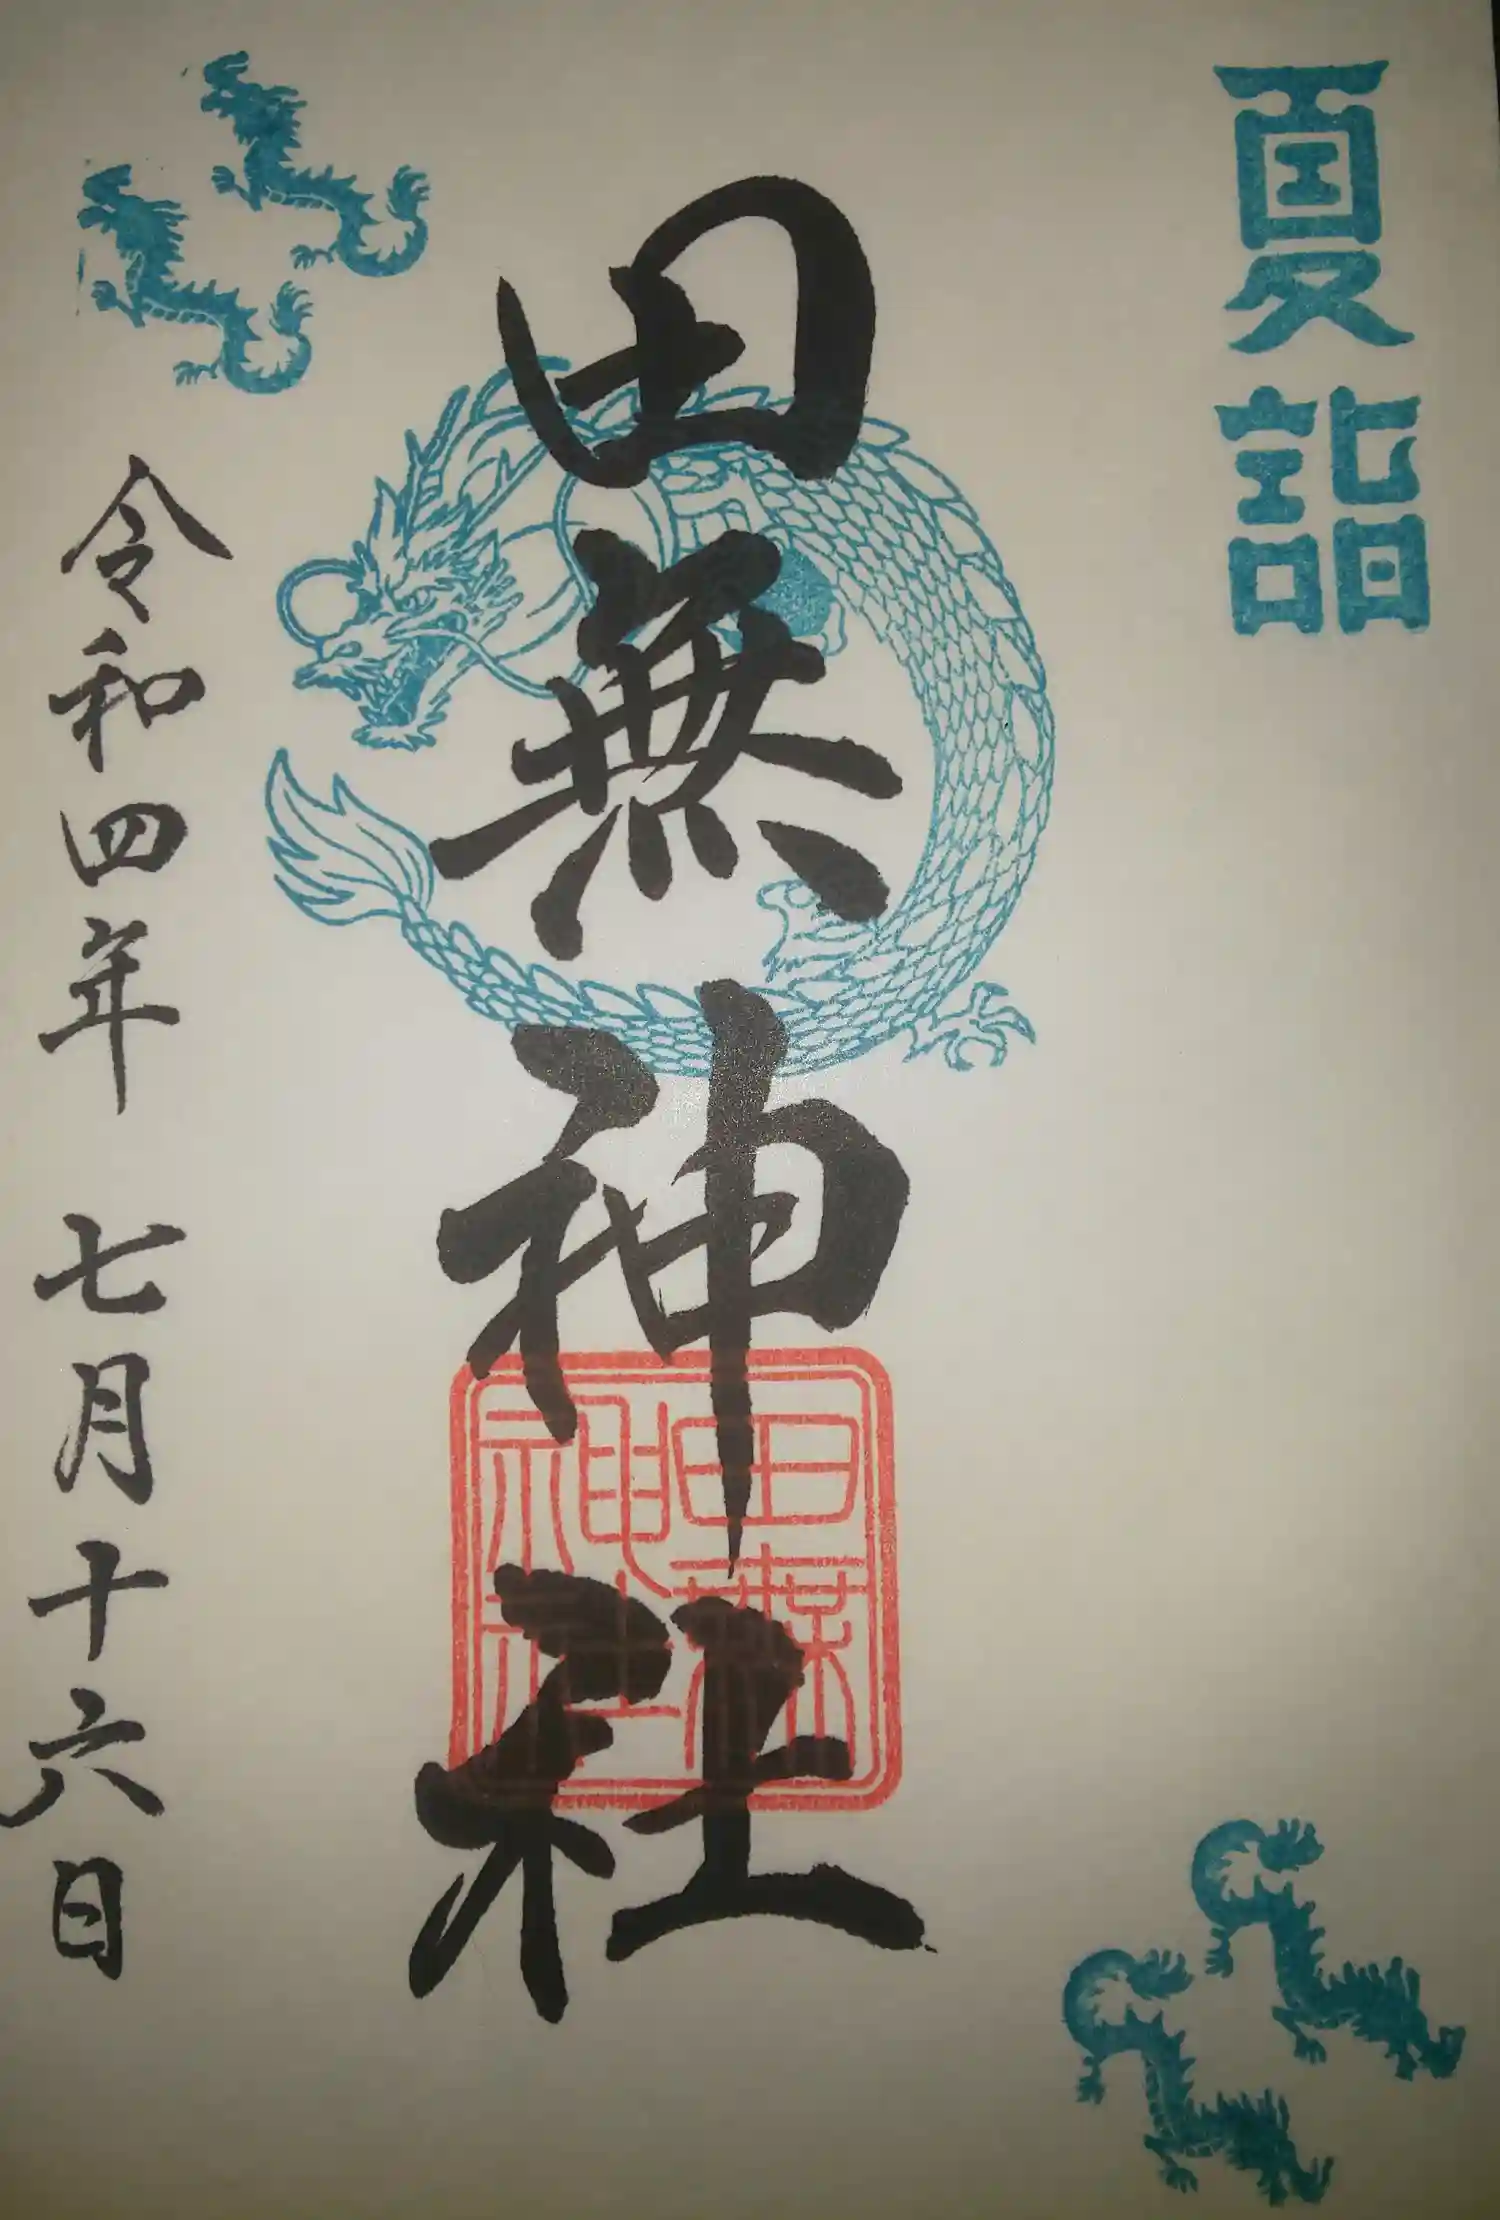 夏詣
田無神社
田無
神社
令和四年 七月十六日